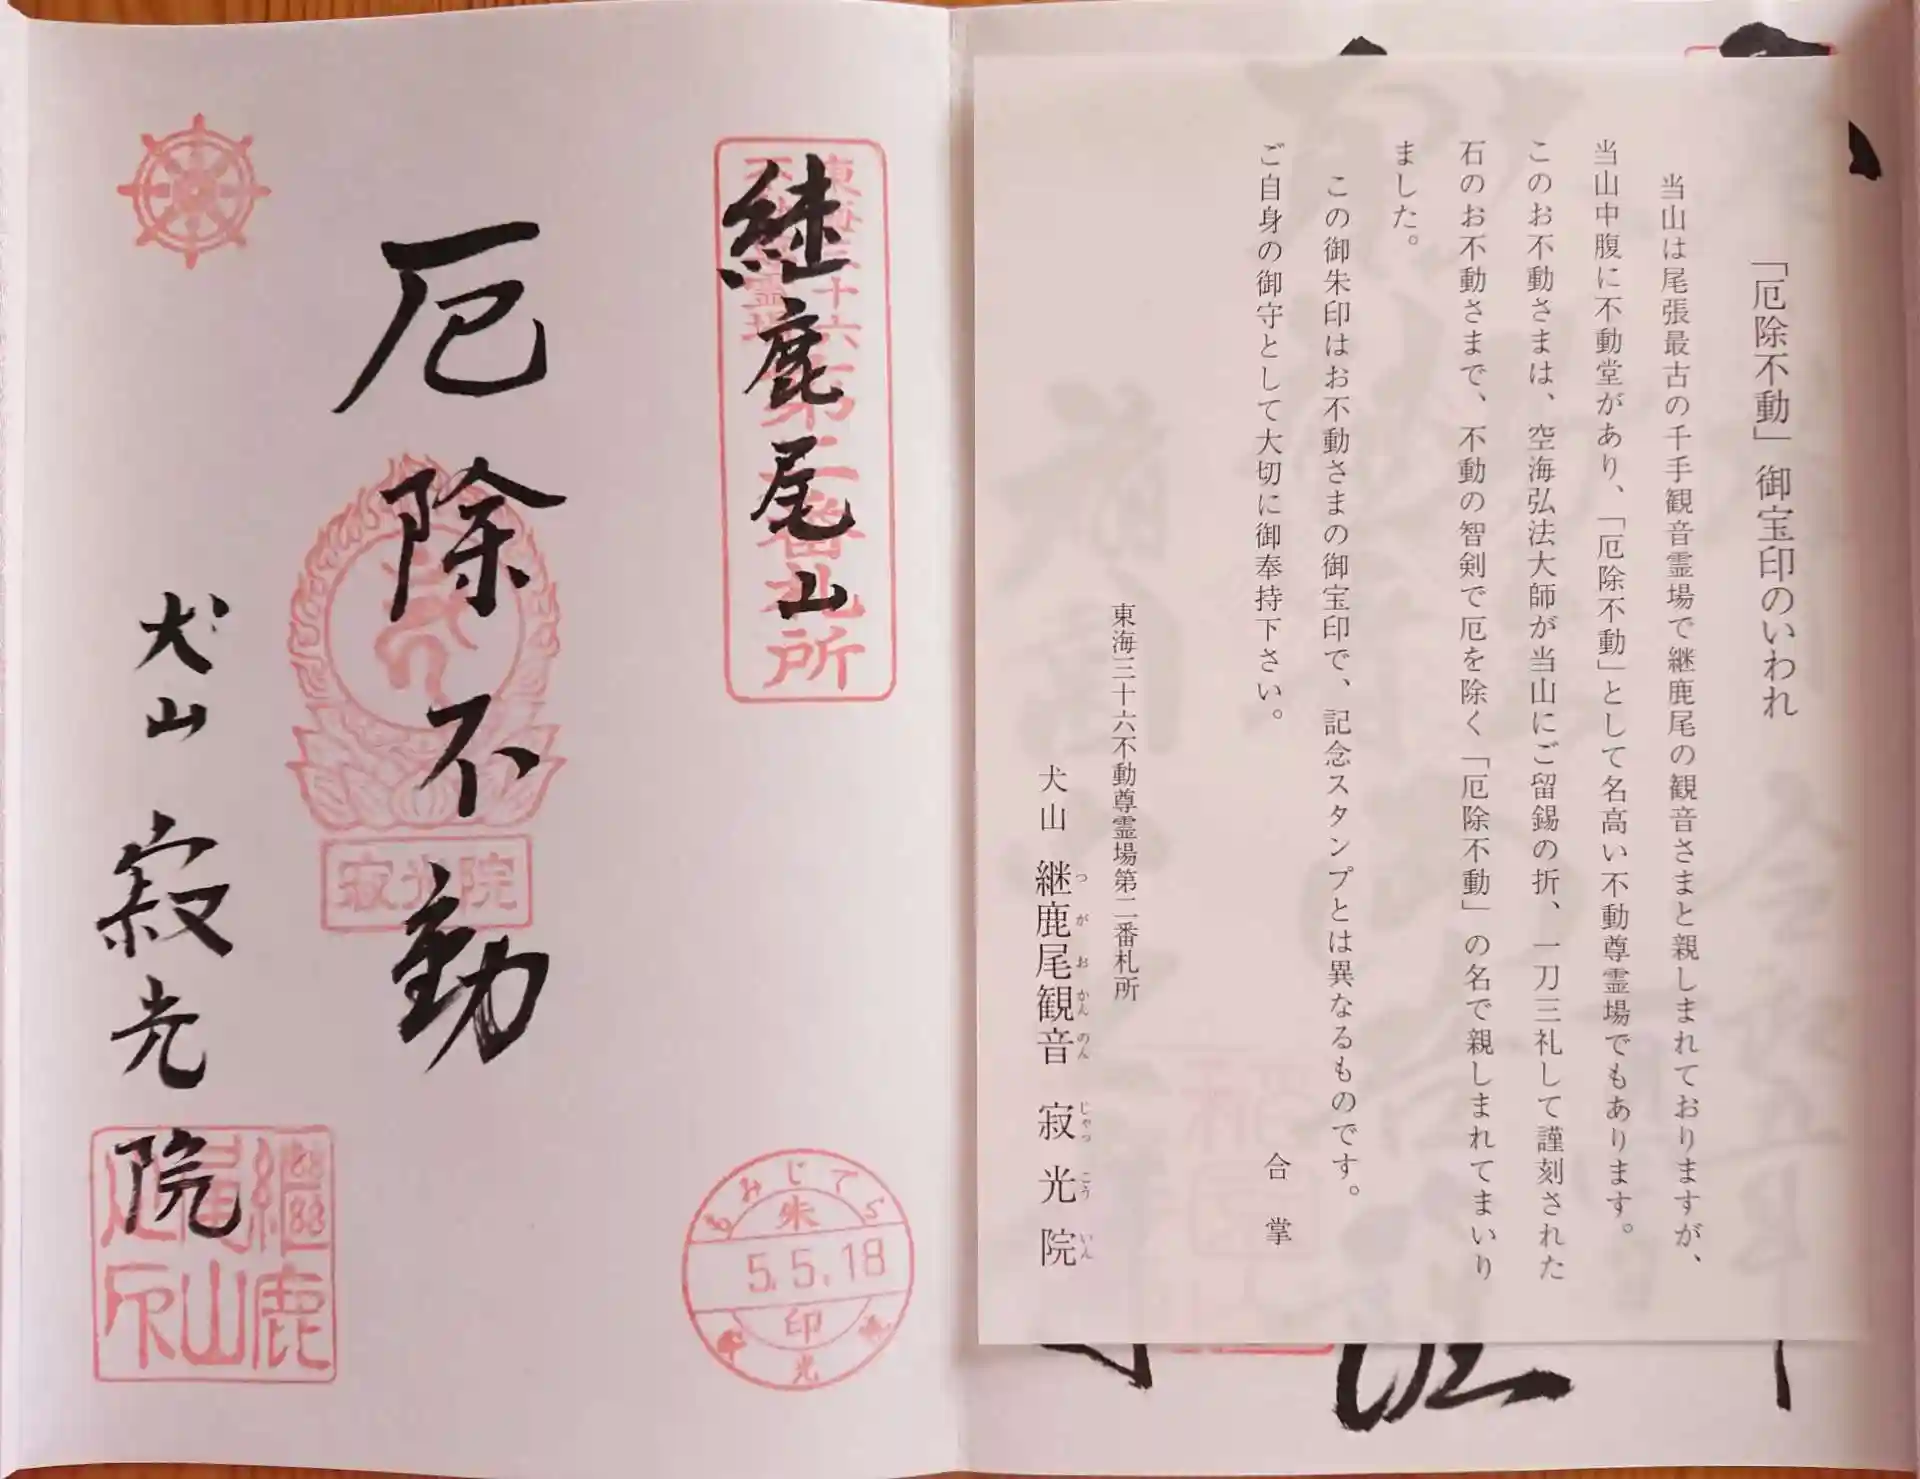 「厄除不動」御宝印のいわれ
当山は尾張最古の千手観音霊場で継鹿尾の観音さまと親しまれておりますが、
当山中腹に不動堂があり、「厄除不動」として名高い不動尊霊場でもあります。
このお不動さまは、空海弘法大師が当山にご留錫の折、一刀三礼して謹刻された
石のお不動さまで、不動の智剣で厄を除く「厄除不動」の名で親しまれてまいり
ました。
この御朱印はお不動さまの御宝印で、記念スタンプとは異なるものです。
ご自身の御守として大切に御奉持下さい。
合掌
東海三十六不動尊霊場第二番札所
犬山 継鹿尾観音 寂光院
つがおかんのん じゃっこういん
継鹿尾山
東海三十六
第二番札所
厄除不動
寂光院
犬山 寂光院
継鹿
尾山
もみじでら
朱
5.5.18
印
光